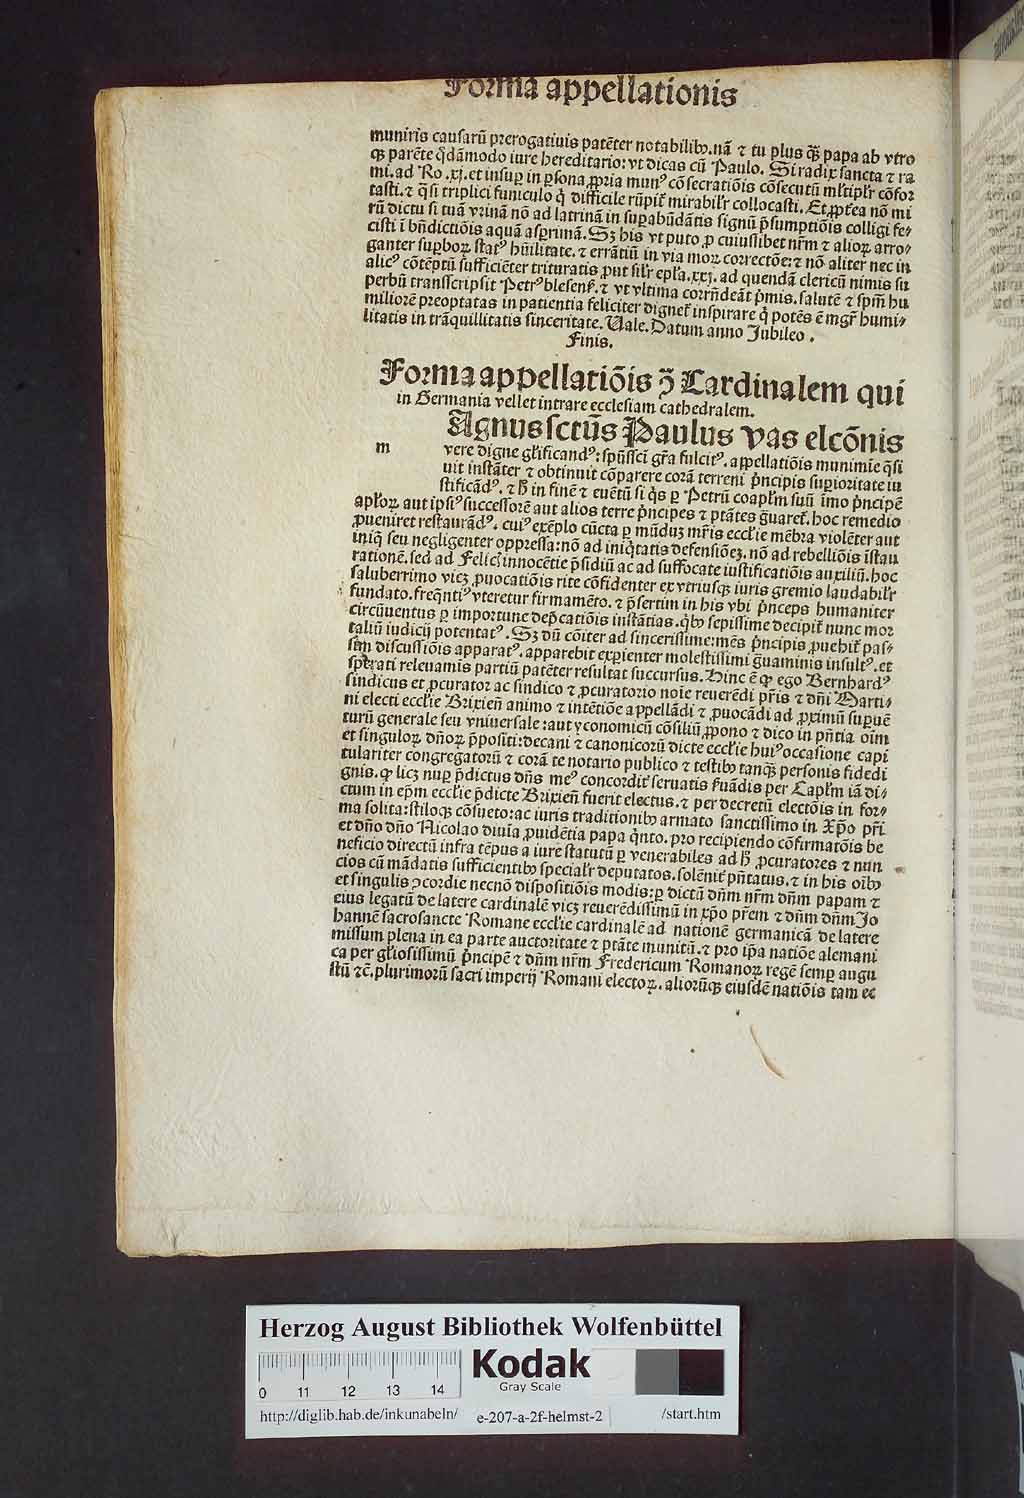 Forma appellationis
muniris causarū prerogatiuis patēter notabilibꝰ. nā ⁊ tu plus qꝫ̄ papa ab vtro
qꝫ parēte q̇dāmodo iure hereditario: vt dicas cū Paulo. Si radix sancta ⁊ ra
mi. ad Ro. xj. et insuꝑ in ꝑsona ꝓpria munꝰ cōsecratiōis cōsecutū ml̄tipl̄r cōfor
tasti. ⁊ q̄si triplici funiculo q̇ difficile rūpit̄ mirabil̄r collocasti. Et ꝓpt̄ea nō mi
rū dictu si tuā vrinā nō ad latrinā in suꝑabūdātis signū p̄sumptiōis colligi fe⸗
cisti ī bn̄dictiōis aquā asꝑrimā. Sꝫ his vt puto ꝓ cuiuslibet nr̄m ⁊ alioꝝ arro⸗
ganter suꝑboꝝ statꝰ hūilitate. ⁊ errātiū in via moꝝ correctōe: ⁊ nō aliter nec in
alicꝰ cōtēptū sufficiēter trituratis ꝓut sil̄r epl̄a. xxj. ad quendā clericū nimis su
perbū transscripsit Petrꝰ blesenſ. ⁊ vt vltima corrn̄deāt p̄mis. salutē ⁊ spm̄ hu
miliorē preoptatas in patientia feliciter dignet̄ inspirare q̇ potēs ē mgr̄ humi⸗
litatis in trāquillitatis sinceritate. Uale. Datum anno Jubileo.
Finis.
Forma appellatiōis ꝯ̄ Cardinalem qui
in Germania vellet intrare ecclesiam cathedralem.
Agnus sctūs Paulus vas elcōnis
m
vere digne gl̄ificandꝰ: spūssci gr̄a fulcitꝰ. appellatiōis munimīe q̄si
uit instāter ⁊ obtinuit cōparere corā terreni p̄ncipis suꝑioritate iu
stificādꝰ. ⁊ h̄ in finē ⁊ euētū si q̇s ꝑ Petrū coapl̄m suū īmo p̄ncipē
apl̄oꝝ aut ipsiꝰ successorē aut alios terre p̄ncipes ⁊ ptātes ḡuaret̄. hoc remedio
ꝓueniret restaurādꝰ. cuiꝰ exēplo cūcta ꝑ mūduꝫ mr̄is eccl̄ie mēbra violēter aut
iniq̄ seu negligenter oppressa: nō ad iniq̇tatis defensiōeꝫ. nō ad rebelliōis īstau
rationē. sed ad Felicꝭ innocētie p̄sidiū ac ad suffocate iustificatiōis auxiliū. hoc
saluberrimo viceꝫ ꝓuocatiōis rite cōfidenter ex vtriusqꝫ iuris gremio laudabil̄r
fundato. freq̄ntiꝰ vteretur firmamēto. ⁊ p̄sertim in his vbi p̄nceps humaniter
circūuentus ꝑ importune dep̄catiōis instātias. q̇bꝰ sepissime decipit̄ nunc mor
taliū iudicij potentatꝰ. Sꝫ dū cōiter ad sincerissime: mēs p̄ncipis ꝓuehit̄ pas⸗
sim discussiōis apparatꝰ. apparebit exꝑienter molestissimi ḡuaminis insultꝰ. et
sperati releuamis partiū patēter resultat succursus. Hinc ē ꝙ ego Bernhardꝰ
sindicus et ꝓcurator ac sindico ⁊ ꝓcuratorio noīe reuerēdi pr̄is ⁊ dn̄i Marti⸗
ni electi eccl̄ie Brixien̄ animo ⁊ intētiōe appellādi ⁊ ꝓuocādi ad ꝓximū suꝑuē
turū generale seu vniuersale: aut yconomicū cōsiliū ꝓpono ⁊ dico in pn̄tia oīm
et singuloꝝ dn̄oꝝ p̄positi: decani ⁊ canonicorū dicte eccl̄ie huiꝰ occasione capi
tulariter congregatorū ⁊ corā te notario publico ⁊ testibꝰ tanqꝫ̄ personis fidedi
gnis. ꝙ licꝫ nuꝑ p̄dictus dn̄s meꝰ concordit̄ seruatis ẜuādis per Capl̄m iā di⸗
ctum in ep̄m eccl̄ie p̄dicte Brixien̄ fuerit electus. ⁊ per decretū electōis in for⸗
ma solita: stiloqꝫ cōsueto: ac iuris traditionibꝰ armato sanctissimo in Xp̄o pr̄i
et dn̄o dn̄o Nicolao diuīa ꝓuidētia papa q̇nto. pro recipiendo cōfirmatōis be
neficio directū infra tēpus a iure statutū ꝑ venerabiles ad h̄ ꝓcuratores ⁊ nun
cios cū mādatis sufficientibꝰ special̄r deputatos. solēnit̄ pn̄tatus. ⁊ in his oībꝰ
et singulis ꝯcordie necnō dispositiōis modis: ꝑ dictū dn̄m nr̄m dn̄m papam ⁊
eius legatū de latere cardinalē viceꝫ reuerēdissimū in xp̄o pr̄em ⁊ dn̄m dn̄m Jo
hannē sacrosancte Romane eccl̄ie cardinalē ad nationē germanicā de latere
missum plena in ea parte auctoritate ⁊ ptāte munitū. ⁊ pro ip̄a natiōe alemani
ca per gl̄iosissimū p̄ncipē ⁊ dn̄m nr̄m Fredericum Romanoꝝ regē semꝑ augu
stū ⁊c̄. plurimorū sacri imperij Romani electoꝝ. aliorūqꝫ eiusdē natiōis tam ec
Herzog August Bibliothek Wolfenbüttel
Kodak
Gray Scale
0 11 12 13 14
http://diglib.hab.de/inkunabeln/ e-207-a-2f-helmst-2 /start.htm